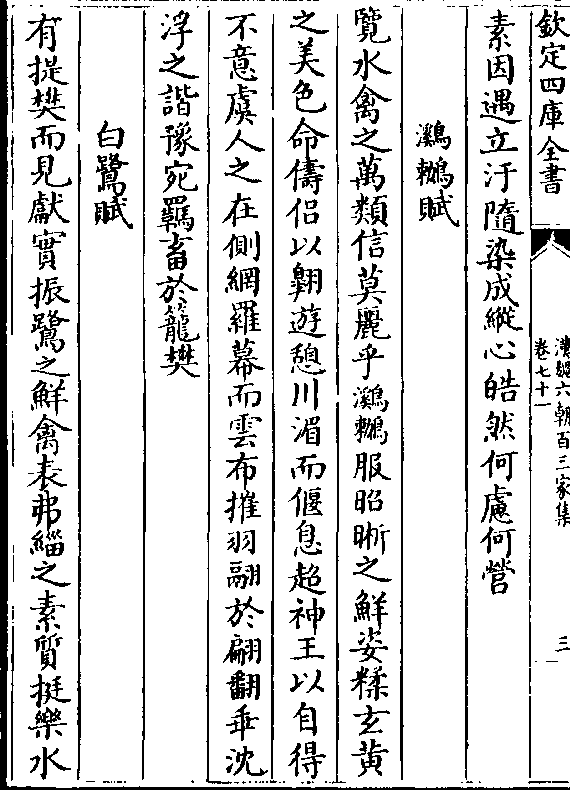 欽定四庫全書
漢魏六朝百三家集
卷七十一
三
素因遇立汙隨染成縱心皓然何慮何營
鸂鶒賦
覽水禽之萬類信莫麗乎鸂鶒服昭晣之鮮姿糅玄黄
之美色命儔侣以翺遊憩川湄而偃息超神王以自得
不意虞人之在側網羅幕而雲布摧羽翮於翩翻乖沈
浮之諧豫宛羈畜於籠樊
白鷺賦
有提樊而見獻實振鷺之鮮禽表弗緇之素質挺樂水